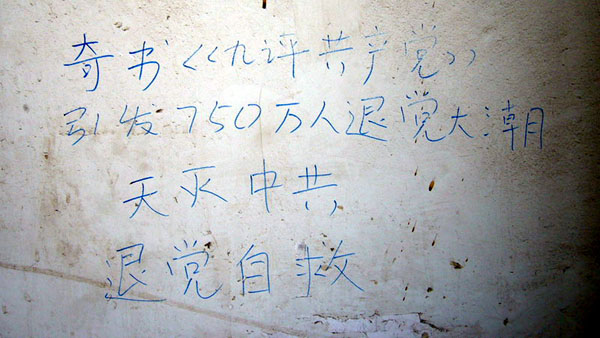 奇书《九评共产党》
引发750万人退党大潮
天灭中共
退党自救